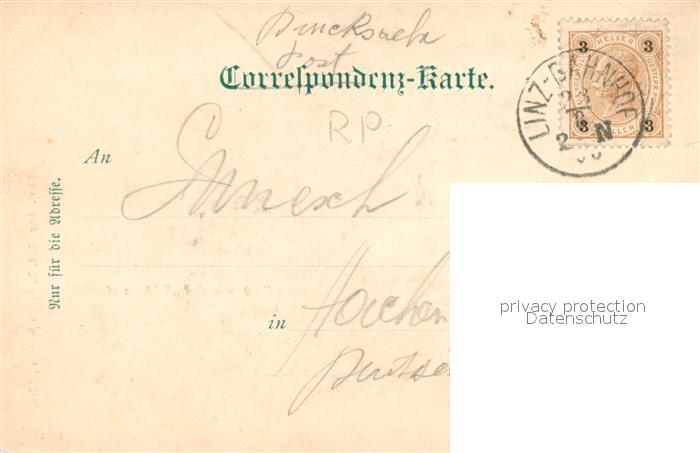 Drucksache
Post
Correspondenz-Karte.
3 HELLER 3
3 HELLER 3
LINZ-BAHNHOF
2 N
RP
An
in Aachen
Nur für die Adresse.
privacy protection
Datenschutz